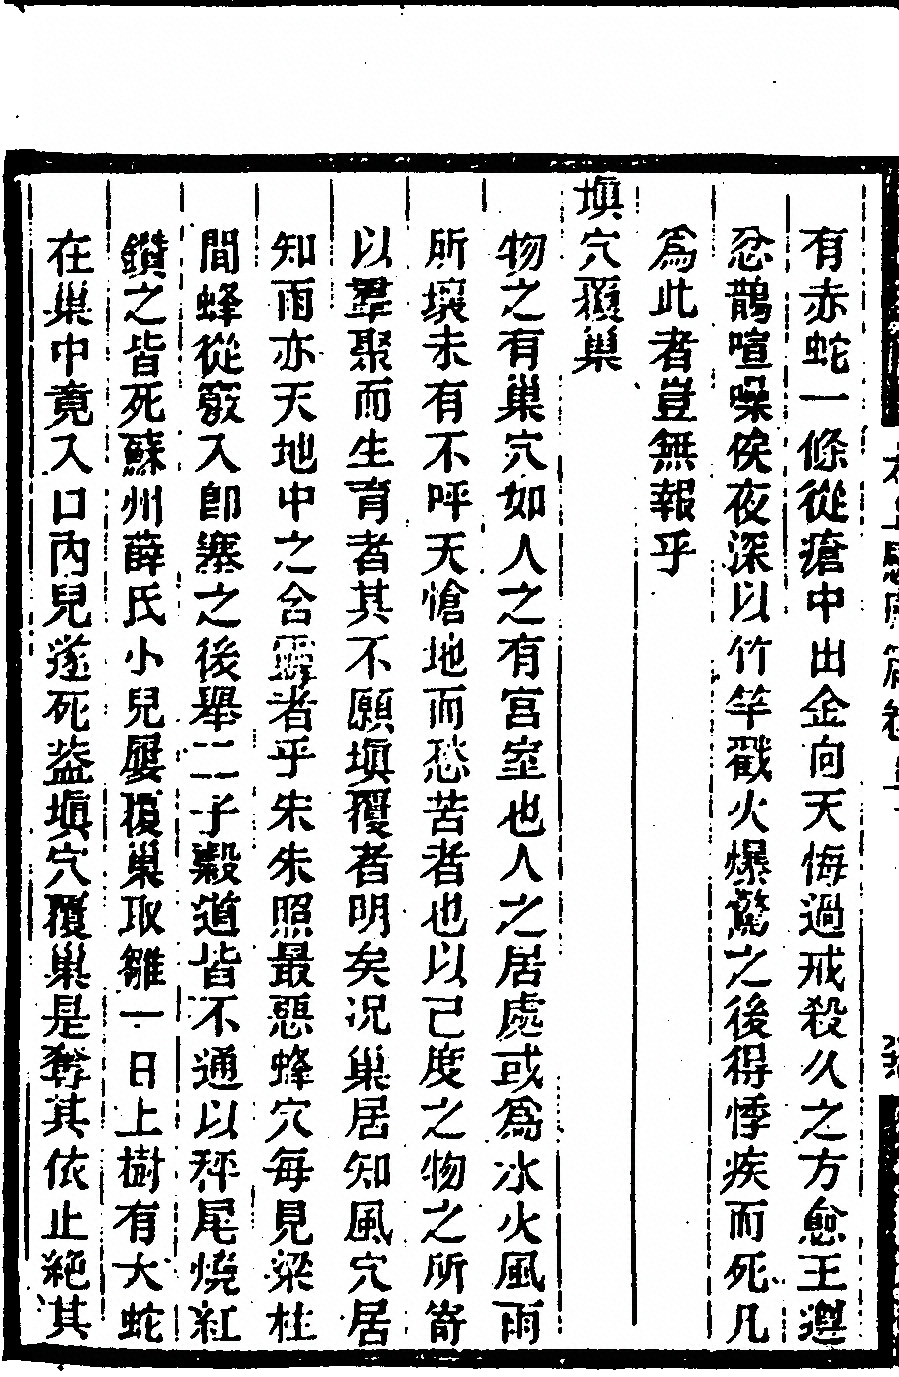 有赤蛇一條從瘡中出金向天悔過戒殺久之方愈王遵
忿鵲喧噪俟夜深以竹竿戳火爆驚之後得悸疾而死凡
爲此者豈無報乎
塡穴覆巢
物之有巢穴如人之有宮室也人之居處或爲水火風雨
所壞未有不呼天愴地而愁苦者也以己度之物之所寄
以羣聚而生育者其不願塡覆者明矣況巢居知風穴居
知雨亦天地中之含靈者乎朱朱照最惡蜂穴每見梁柱
間蜂從竅入卽塞之後舉二子穀道皆不通以秤尾燒紅
鑽之皆死蘇州薛氏小兒屢覆巢取雛一日上樹有大蛇
在巢中竟入口內兒遂死葢塡穴覆巢是奪其依止絕其